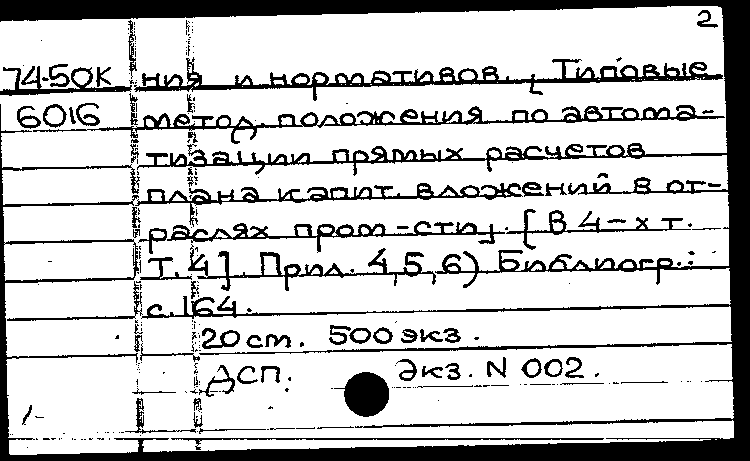 2
74-50К ния и нормативов. [Типовые
6016 метод. положения по автома-
тизации прямых расчетов
плана капит. вложений в от-
раслях пром-сти]. [В 4-х т.
Т.4]. Прил. 4,5,6) Библиогр.:
с.164.
20 см. 500 экз.
ДСП. Экз. N 002.
1-